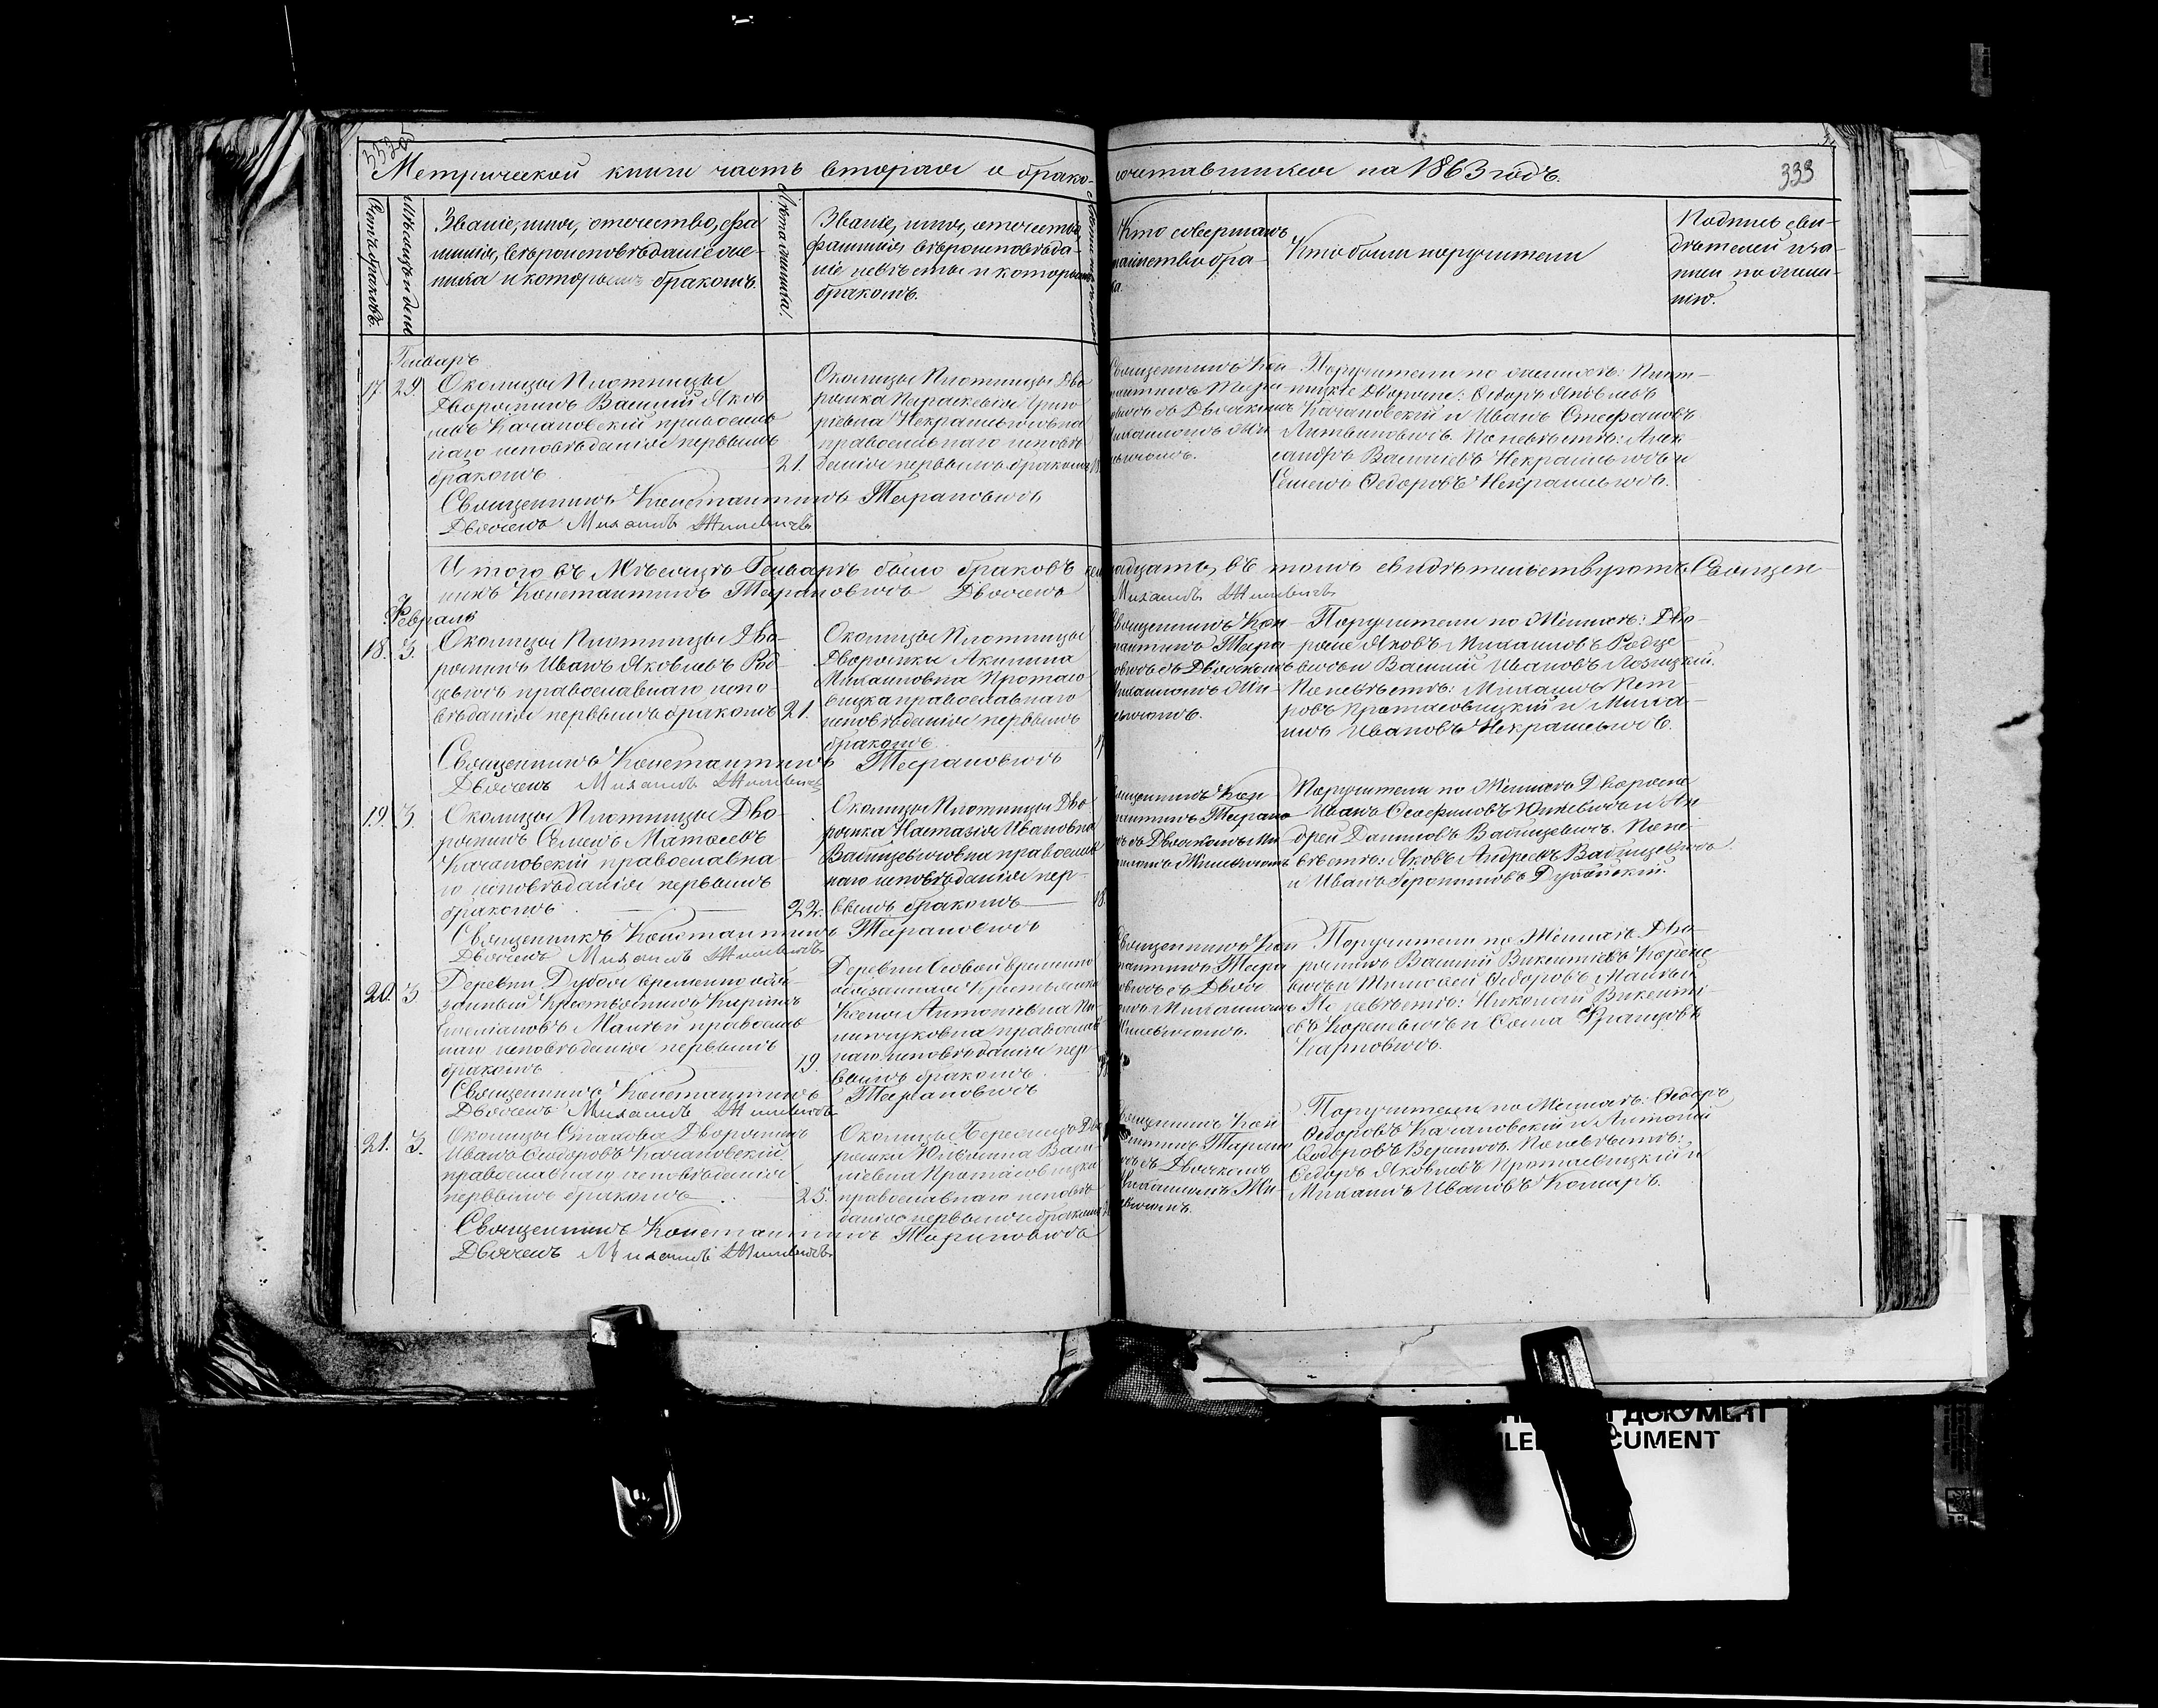 Метрической книги часть вторая о брако-
сочетавшихся на 1863 годъ.
333
Счетъ браковъ.
Мѣсяцъ и день
Званіе, имя, отечество, фа
милія, вѣроисповѣданіе же-
ниха и которымъ бракомъ.
Лѣта жениха.
Званіе, имя, отечество
фамилія, вѣроисповѣда-
ніе невѣсты и которымъ
бракомъ.
Кто совершалъ
таинство бра-
ка.
Кто были поручители
Подпись сви-
дѣтелей и за-
писи по жела-
нію.
Генваръ
17. 29. Околицы Плотницы
Дворянинъ Василій Яков
левъ Качановскій православ
наго исповѣданія первымъ
бракомъ
21.
Околицы Плотницы Дво
рянка Параскевія Григо
ріевна Некрашевичовна
православнаго исповѣ
данія первымъ бракомъ
Священникъ Кон
стантинъ Тара
новичъ съ Дьячкомъ
Михаиломъ Жи
левичомъ.
Поручители по женихѣ: Плот-
ницкіе Дворяне: Ѳедоръ Яковлевъ
Качановскій и Иванъ Стефановъ
Литвиновичъ. По невѣстѣ: Алек
сандръ Василіевъ Некрашевичъ и
Семенъ Ѳедоровъ Некрашевичъ.
Священникъ Константинъ Тарановичъ
Дьячекъ Михаилъ Жилевичъ
Итого въ Мѣсяцѣ Генварѣ было браковъ сем
надцать, въ томъ свидѣтельствуютъ Священ-
никъ Константинъ Тарановичъ Дьячекъ
Михаилъ Жилевичъ
Февраль
18. 3. Околицы Плотницы Дво-
рянинъ Иванъ Яковлевъ Род-
цевичъ православнаго испо-
вѣданія первымъ бракомъ
21.
Околицы Плотницы
Дворянка Акилина
Михаиловна Протасо
вицка православнаго
исповѣданія первымъ
бракомъ
Священникъ Кон-
стантинъ Тара-
новичъ съ Дьячкомъ
Михаиломъ Жи-
левичомъ.
Поручители по Женихѣ: Дво-
ряне Яковъ Михаиловъ Родце-
вичъ и Василій Ивановъ Лозицкій.
По невѣстѣ: Михаилъ Пет-
ровъ Протасовицкій и Миха-
илъ Ивановъ Некрашевичъ.
Священникъ Константинъ Тарановичъ
Дьячекъ Михаилъ Жилевичъ
19. 3. Околицы Плотницы Дво-
рянинъ Семенъ Матѳеевъ
Качановскій православна-
го исповѣданія первымъ
бракомъ
22.
Околицы Плотницы Дво-
рянка Настазія Ивановна
Вабищевичовна православ
наго исповѣданія пер-
вымъ бракомъ
18.
Священникъ Кон
стантинъ Тарано
вичъ съ Дьячкомъ Ми
хаиломъ Жилевичомъ
Поручители по Женихѣ Дворяне
Иванъ Осефиновъ Юхневичъ и Ан
дрей Даниловъ Вабищевичъ. По не-
вѣстѣ: Яковъ Андреевъ Вабищевичъ
и Иванъ Геронимовъ Дубойскій.
Священникъ Константинъ Тарановичъ
Дьячекъ Михаилъ Жилевичъ
20. 3 Деревни Дубоя временно обя-
занный крестьянинъ Кирилъ
Степановъ православ
наго исповѣданія первымъ
бракомъ
19.
Деревни Осовой временно
обязанная крестьянка
Ксенія Антоніевна
православ
наго исповѣданія пер-
вымъ бракомъ
Священникъ Кон
стантинъ Тара
новичъ съ Дьяч
комъ Михаиломъ
Жилевичомъ.
Поручители по Женихѣ Дво-
рянинъ Василій Викентіевъ Корене-
вичъ и Тимофей Ѳедоровъ
По невѣстѣ: Николай Викенті-
евъ Кореневичъ и Сема Францовъ
Карповичъ.
Священникъ Константинъ Тарановичъ
Дьячекъ Михаилъ Жилевичъ
21. 3. Околицы Стахова Дворянинъ
Иванъ Ѳеодоровъ Качановскій
православнаго исповѣданія
первымъ бракомъ
23.
Околицы Бережцевъ Дво
рянка Юліянна Васи
ліевна Протасовицка
православнаго исповѣ
данія первымъ бракомъ
Священникъ Кон
стантинъ Тарано
вичъ съ Дьячкомъ
Михаиломъ Жи-
левичомъ.
Поручители по Женихѣ: Ѳедоръ
Ѳедоровъ Качановскій и Антоній
Ѳедоровъ Вереничъ. По невѣстѣ:
Ѳедоръ Яковлевъ Протасовицкій и
Михаилъ Ивановъ Комаръ.
Священникъ Константинъ Тарановичъ
Дьячекъ Михаилъ Жилевичъ
ДОКУМЕНТ
DOCUMENT